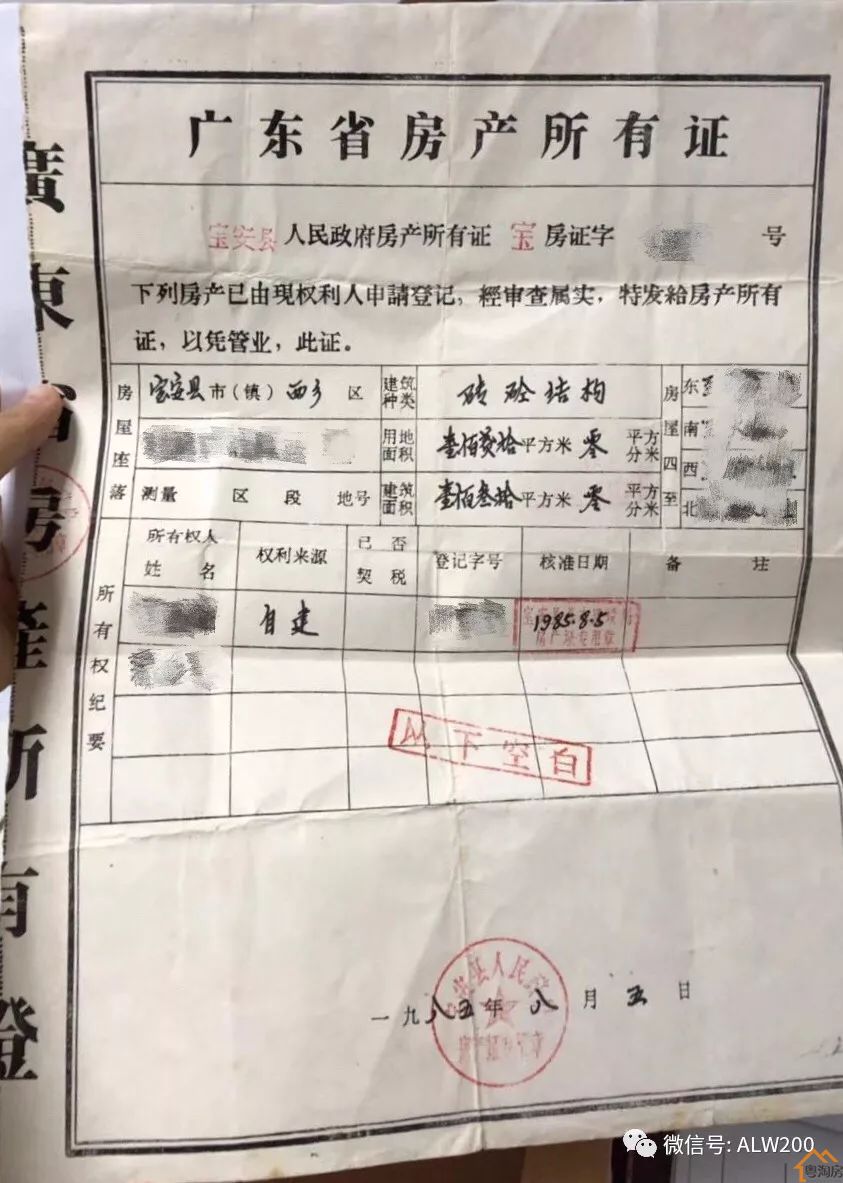 广东省房产所有证
宝安县人民政府房产所有证 宝 房证字 号
下列房产已由现权利人申請登记，經审查属实，特发給房产所有
证，以凭管业，此证。
房屋座落
宝安县市（镇）西乡 区
测量 区 段 地号
建筑种类
砖砼结构
用地面积
壹佰贰拾平方米 零 平方分米
建筑面积
壹佰叁拾平方米 零 平方分米
房屋四至
东
南
西
北
所有权纪要
所有权人姓名
权利来源
已否契税
登记字号
核准日期
备 注
自建
1985.8.5
房产
专用章
以下空白
一九八五年八月五日
安县人民
廣東省房産所有證
微信号: ALW200
粤淘房